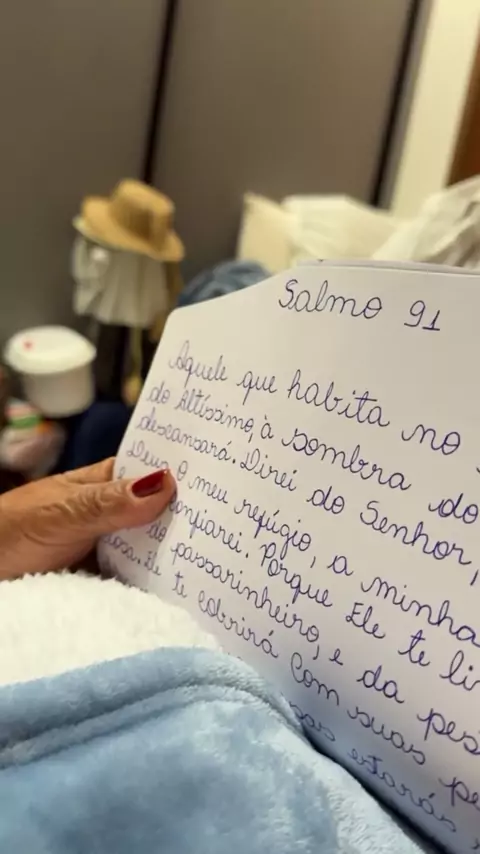 Salmo 91
Aquele que habita no
do Altíssimo, à sombra do
descansará. Direi do Senhor,
Deus o meu refúgio, a minha
confiarei. Porque Ele te li
do passarinheiro, e da pes
Ele te cobrirá com suas pe
estarás